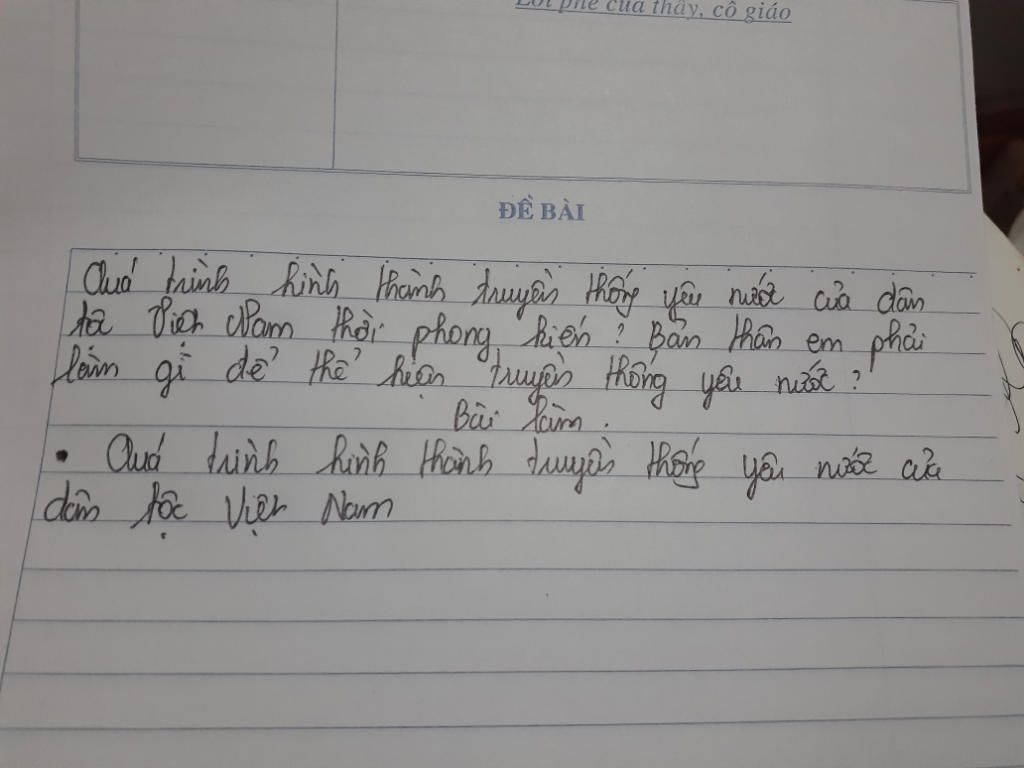 Lời phê của thầy, cô giáo
ĐỀ BÀI
Quá trình hình thành truyền thống yêu nước của dân
tộc Việt Nam thời phong kiến? Bản thân em phải
làm gì để thể hiện truyền thống yêu nước?
Bài làm.
• Quá trình hình thành truyền thống yêu nước của
dân tộc Việt Nam